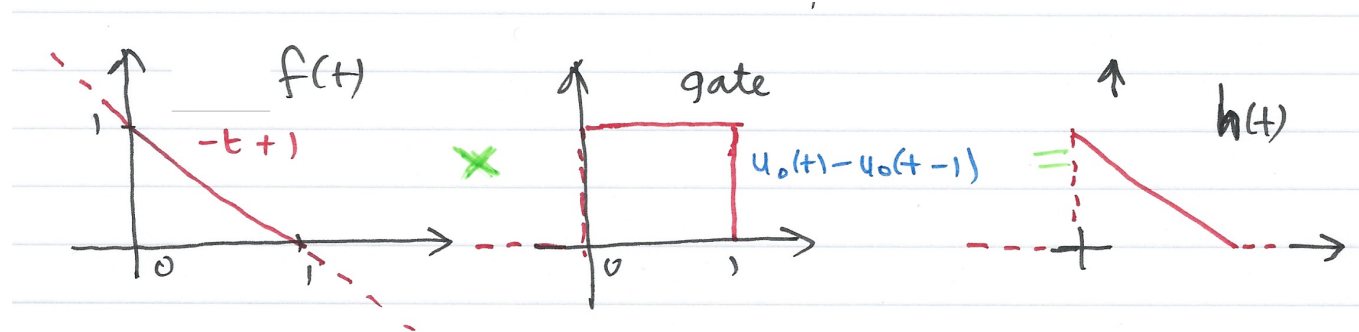 f(t)
1
-t + 1
0
1
×
gate
u₀(t) - u₀(t-1)
0
1
=
h(t)